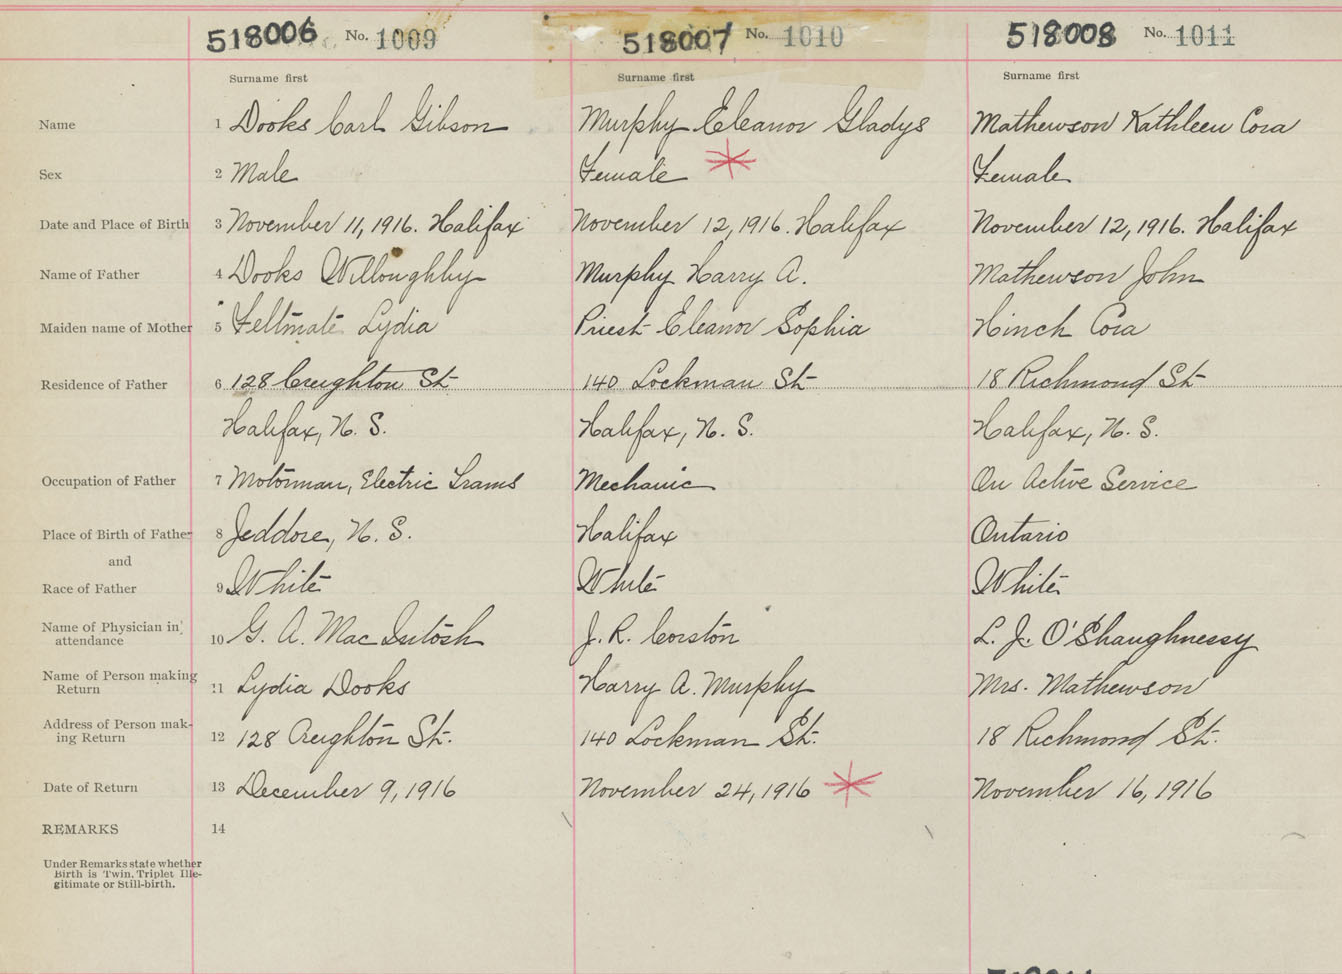 518006 No. 1009 518007 No. 1010 518008 No. 1011
Surname first Surname first Surname first
Name 1 Dooks Carl Gibson Murphy Eleanor Gladys Mathewson Kathleen Cora
Sex 2 Male Female Female
Date and Place of Birth 3 November 11, 1916. Halifax November 12, 1916. Halifax November 12, 1916. Halifax
Name of Father 4 Dooks Willoughby Murphy Harry A. Mathewson John
Maiden name of Mother 5 Feltmate Lydia Priest Eleanor Sophia Hinch Cora
Residence of Father 6 128 Creighton St 140 Lockman St 18 Richmond St
Halifax, N. S. Halifax, N. S. Halifax, N. S.
Occupation of Father 7 Motorman, Electric Trams Mechanic On Active Service
Place of Birth of Father 8 Jeddore, N. S. Halifax Ontario
and
Race of Father 9 White White White
Name of Physician in
attendance 10 G. A. MacIntosh J. R. Corston L. J. O'Shaughnessy
Name of Person making
Return 11 Lydia Dooks Harry A. Murphy Mrs. Mathewson
Address of Person mak-
ing Return 12 128 Creighton St. 140 Lockman St. 18 Richmond St.
Date of Return 13 December 9, 1916 November 24, 1916 November 16, 1916
REMARKS 14
Under Remarks state whether
Birth is Twin, Triplet Ille-
gitimate or Still-birth.